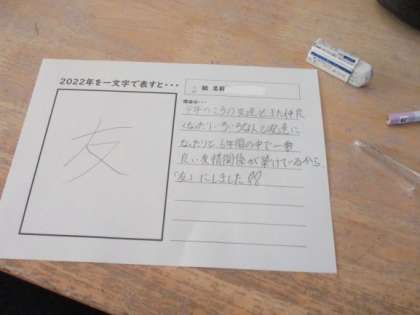 2022年を一文字で表すと・・・
組 名前
理由は・・・
友
今年のこうの友達とまた仲良
くなったり、いろいろな人と友達に
なったりと、6年間の中で一番
良い友情関係が築けているから
「友」にしました!!